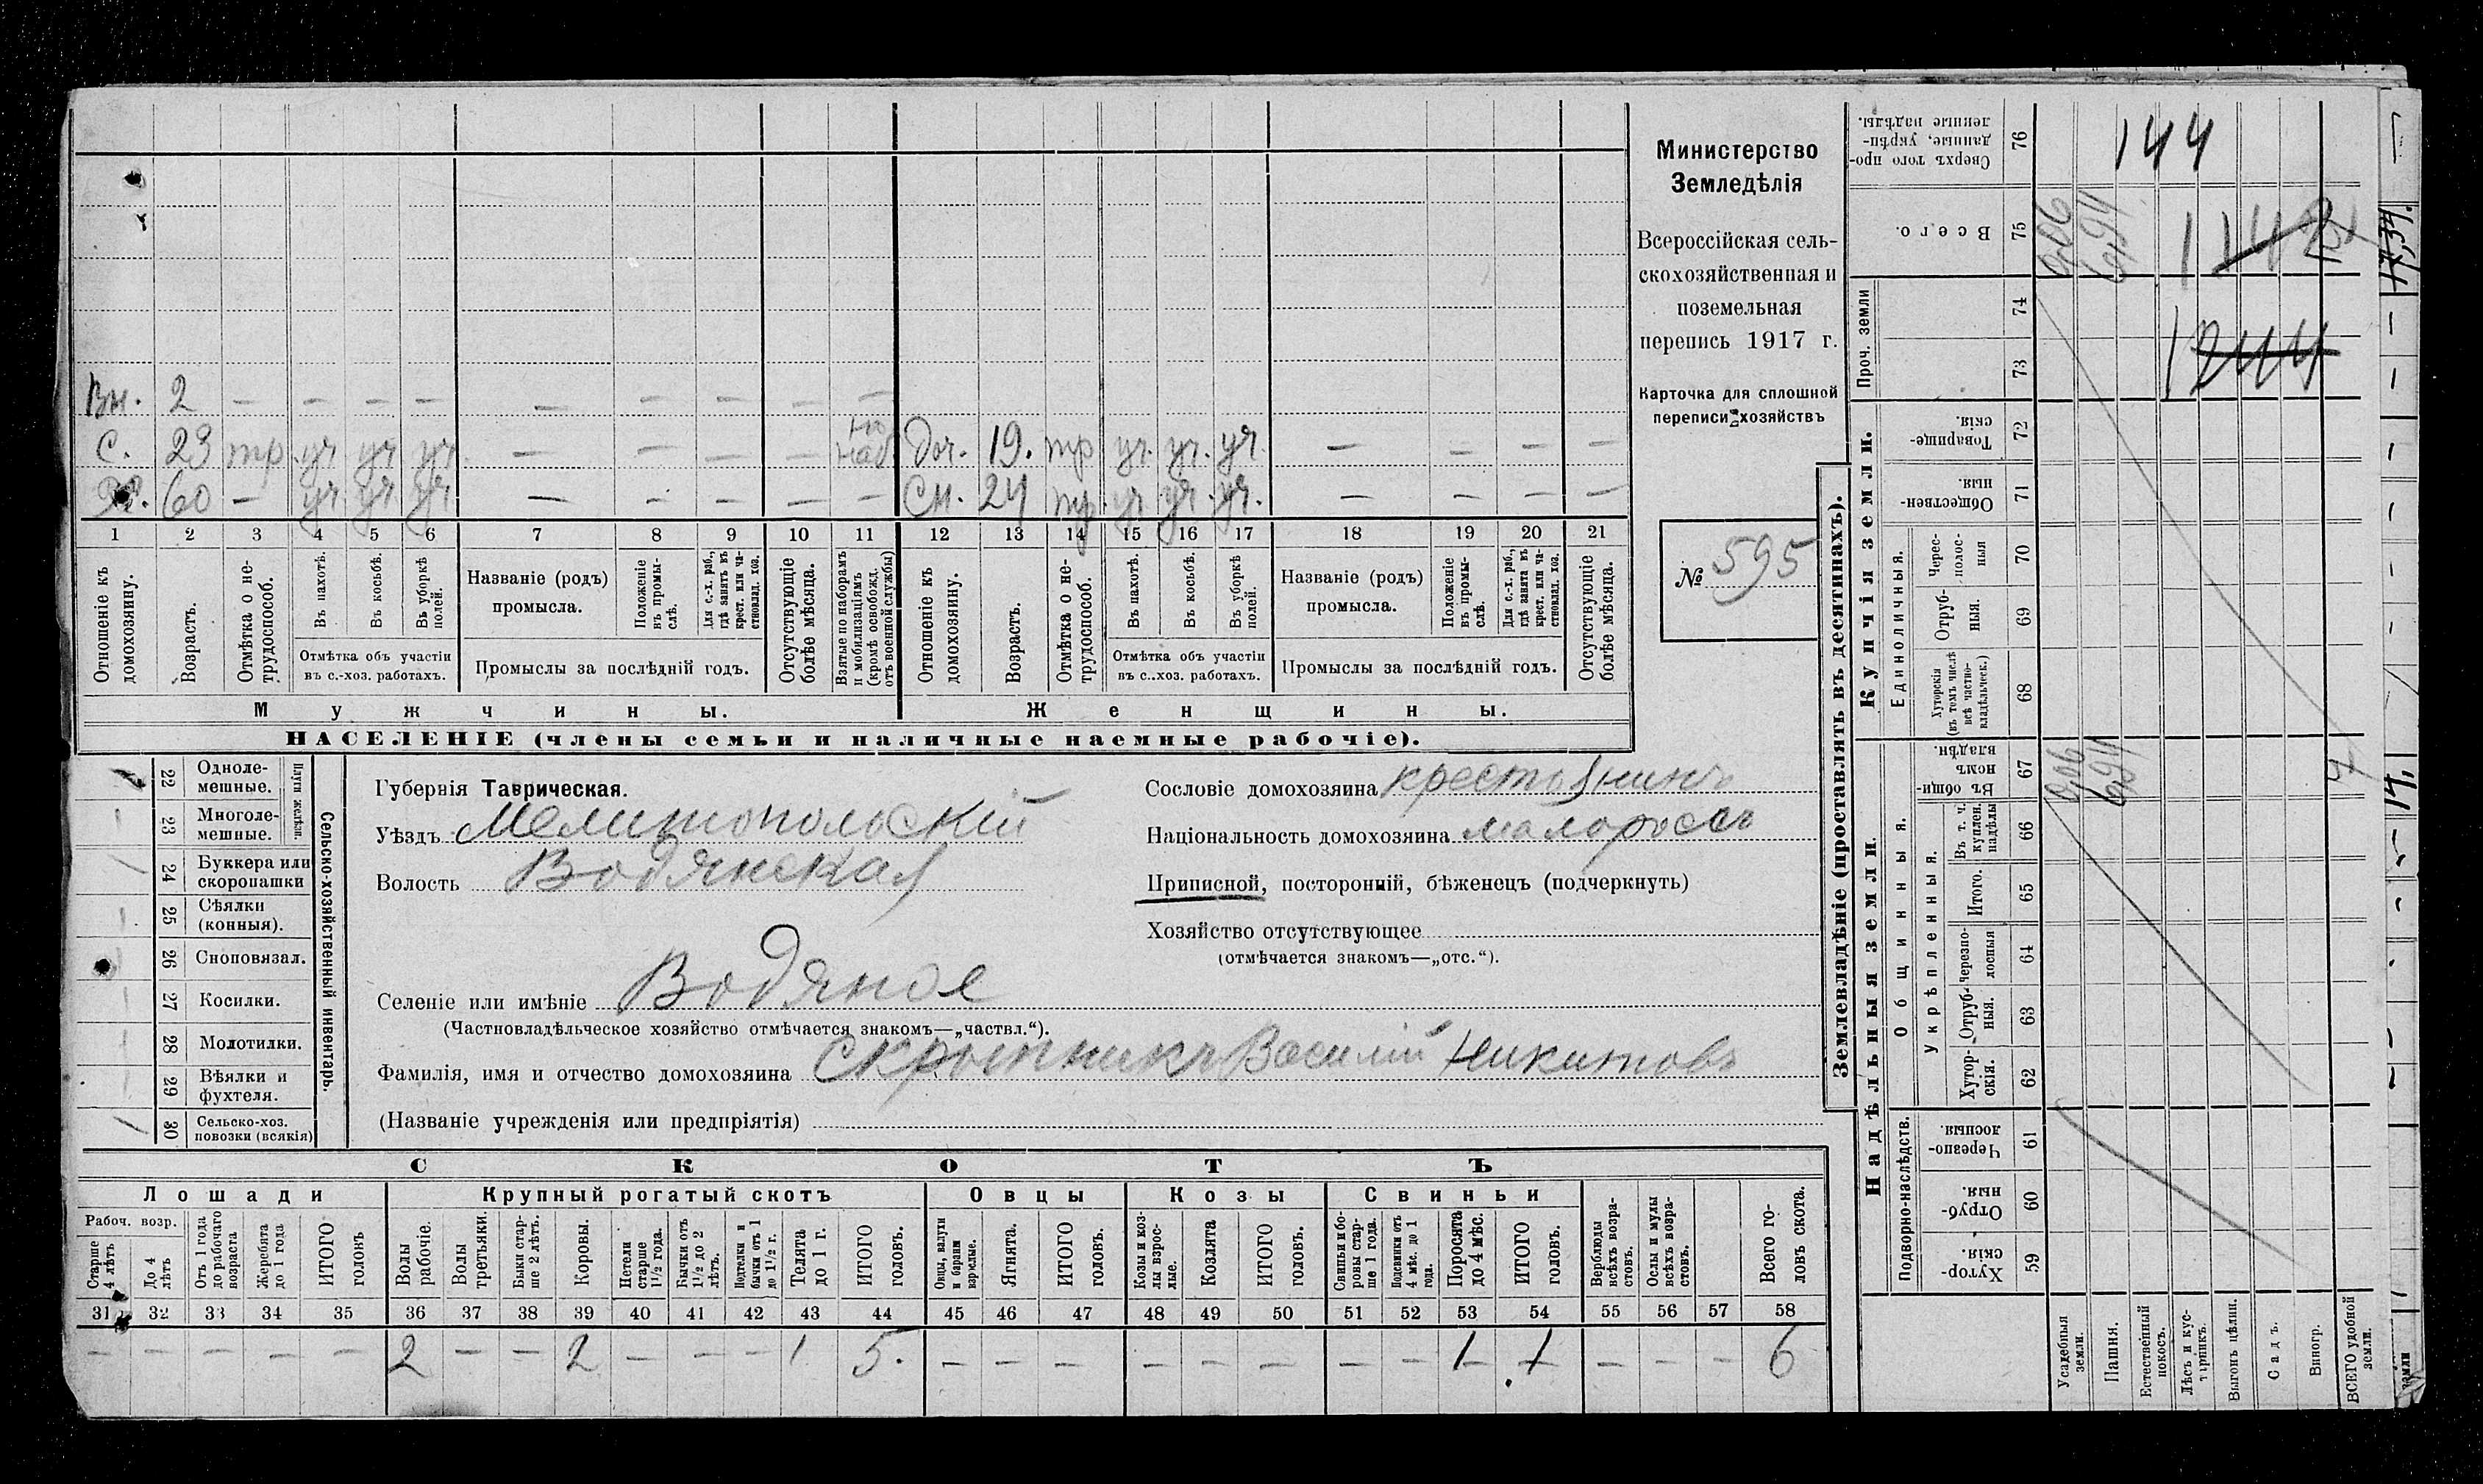 Министерство
Земледѣлія
Всероссійская сель-
скохозяйственная и
поземельная
перепись 1917 г.
Карточка для сплошной
переписи хозяйствъ
№ 595
Вн. 2 — — — — — — — — —
С. 23 тр. уч уч уч. — — — — наб Доч. 19. тр уч. уч. уч — — — —
60 — уч уч уч — — — — — Сн. 24 тр. уч уч. уч. — — — —
1 2 3 4 5 6 7 8 9 10 11 12 13 14 15 16 17 18 19 20 21
Отношеніе къ домохозяину.
Возрастъ.
Отмѣтка о не-трудоспособ.
Въ пахотѣ.
Въ косьбѣ.
Въ уборкѣ полей.
Отмѣтка объ участіи
въ с.-хоз. работахъ.
Названіе (родъ)
промысла.
Положеніе въ промы-слѣ.
Для с.-х. раб., гдѣ занятъ въ крест. или ча-стновлад. хоз.
Промыслы за послѣдній годъ.
Отсутствующіе болѣе мѣсяца.
Взятые по наборамъ и мобилизаціямъ (кромѣ освобожд. отъ военной службы)
Отношеніе къ домохозяину.
Возрастъ.
Отмѣтка о не-трудоспособ.
Въ пахотѣ.
Въ косьбѣ.
Въ уборкѣ полей.
Отмѣтка объ участіи
въ с..хоз. работахъ.
Названіе (родъ)
промысла.
Положеніе въ промы-слѣ.
Для с.-х. раб., гдѣ занята въ крест. или ча-стновлад. хоз.
Промыслы за послѣдній годъ.
Отсутствующіе болѣе мѣсяца.
Мужчины.
Женщины.
НАСЕЛЕНІЕ (члены семьи и наличные наемные рабочіе).
Сельско-хозяйственный инвентарь.
22 Одноле-
мешные.
23 Многоле-
мешные.
24 Буккера или
скоропашки
25 Сѣялки
(конныя).
26 Сноповязал.
27 Косилки.
28 Молотилки.
29 Вѣялки и
фухтеля.
30 Сельско-хоз.
повозки (всякія)
Губернія Таврическая.
Уѣздъ Мелитопольскій
Волость Водянская
Селеніе или имѣніе Водяное
(Частновладѣльческое хозяйство отмѣчается знакомъ—„частвл.“).
Фамилія, имя и отчество домохозяина Скрыпникъ Василій Никитовъ
(Названіе учрежденія или предпріятія)
Сословіе домохозяина крестьянинъ
Національность домохозяина малороссъ
Приписной, посторонній, бѣженецъ (подчеркнуть)
Хозяйство отсутствующее
(отмѣчается знакомъ—„отс.“).
СКОТЪ
Лошади
Крупный рогатый скотъ
Овцы
Козы
Свиньи
Рабоч. возр.
Старше 4 лѣтъ
До 4 лѣтъ
Отъ 1 года до рабочаго возраста
Жеребята до 1 года
ИТОГО головъ
Волы рабочіе.
Волы третьяки.
Быки стар-ше 2 лѣтъ.
Коровы.
Нетели старше 1½ года.
Бычки отъ 1½ до 2 лѣтъ.
Подтелки и бычки отъ 1 до 1½ г.
Телята до 1 г.
ИТОГО головъ.
Овцы, валухи и бараны взрослые.
Ягнята.
ИТОГО головъ.
Козы и коз-лы взрос-лые.
Козлята
ИТОГО головъ.
Свиньи и бо-ровы стар-ше 1 года.
Подсвинки отъ 4 мѣс. до 1 года.
Поросята до 4 мѣс.
ИТОГО головъ.
Верблюды всѣхъ возра-стовъ.
Ослы и мулы всѣхъ возра-стовъ.
Всего го-ловъ скота.
31 32 33 34 35 36 37 38 39 40 41 42 43 44 45 46 47 48 49 50 51 52 53 54 55 56 57 58
— — — — — 2 — — 2 — — — 1 5. — — — — — — — — 1 1 — — — 6
Землевладѣніе (проставлять въ десятинахъ).
Надѣльныя земли.
Купчія земли.
Проч. земли
Подворно-наслѣдств.
Общинныя.
Укрѣпленныя.
Единоличныя.
Хутор-скія. 59
Отруб-ныя. 60
Черезпо-лосныя 61
Хутор-скія. 62
Отруб-ныя. 63
Черезпо-лосныя 64
Итого. 65
Въ т. ч. куплен. надѣлы 66
Въ общи-номъ владѣн. 67
Хуторскія (въ томъ числѣ всѣ частно-владѣльческ.) 68
Отруб-ныя. 69
Черес-полос-ныя 70
Обществен-ныя. 71
Товарище-скія. 72
73
74
Всего. 75
Сверхъ того про-данные, укрѣп-ленные надѣлы. 76
Усадебныя земли.
Пашня.
Естественный покосъ.
Лѣсъ и кус-тарникъ.
Выгонъ цѣлин.
Садъ.
Виногр.
ВСЕГО удобной земли.
0,06
6,94
7
0,06
6,94
144